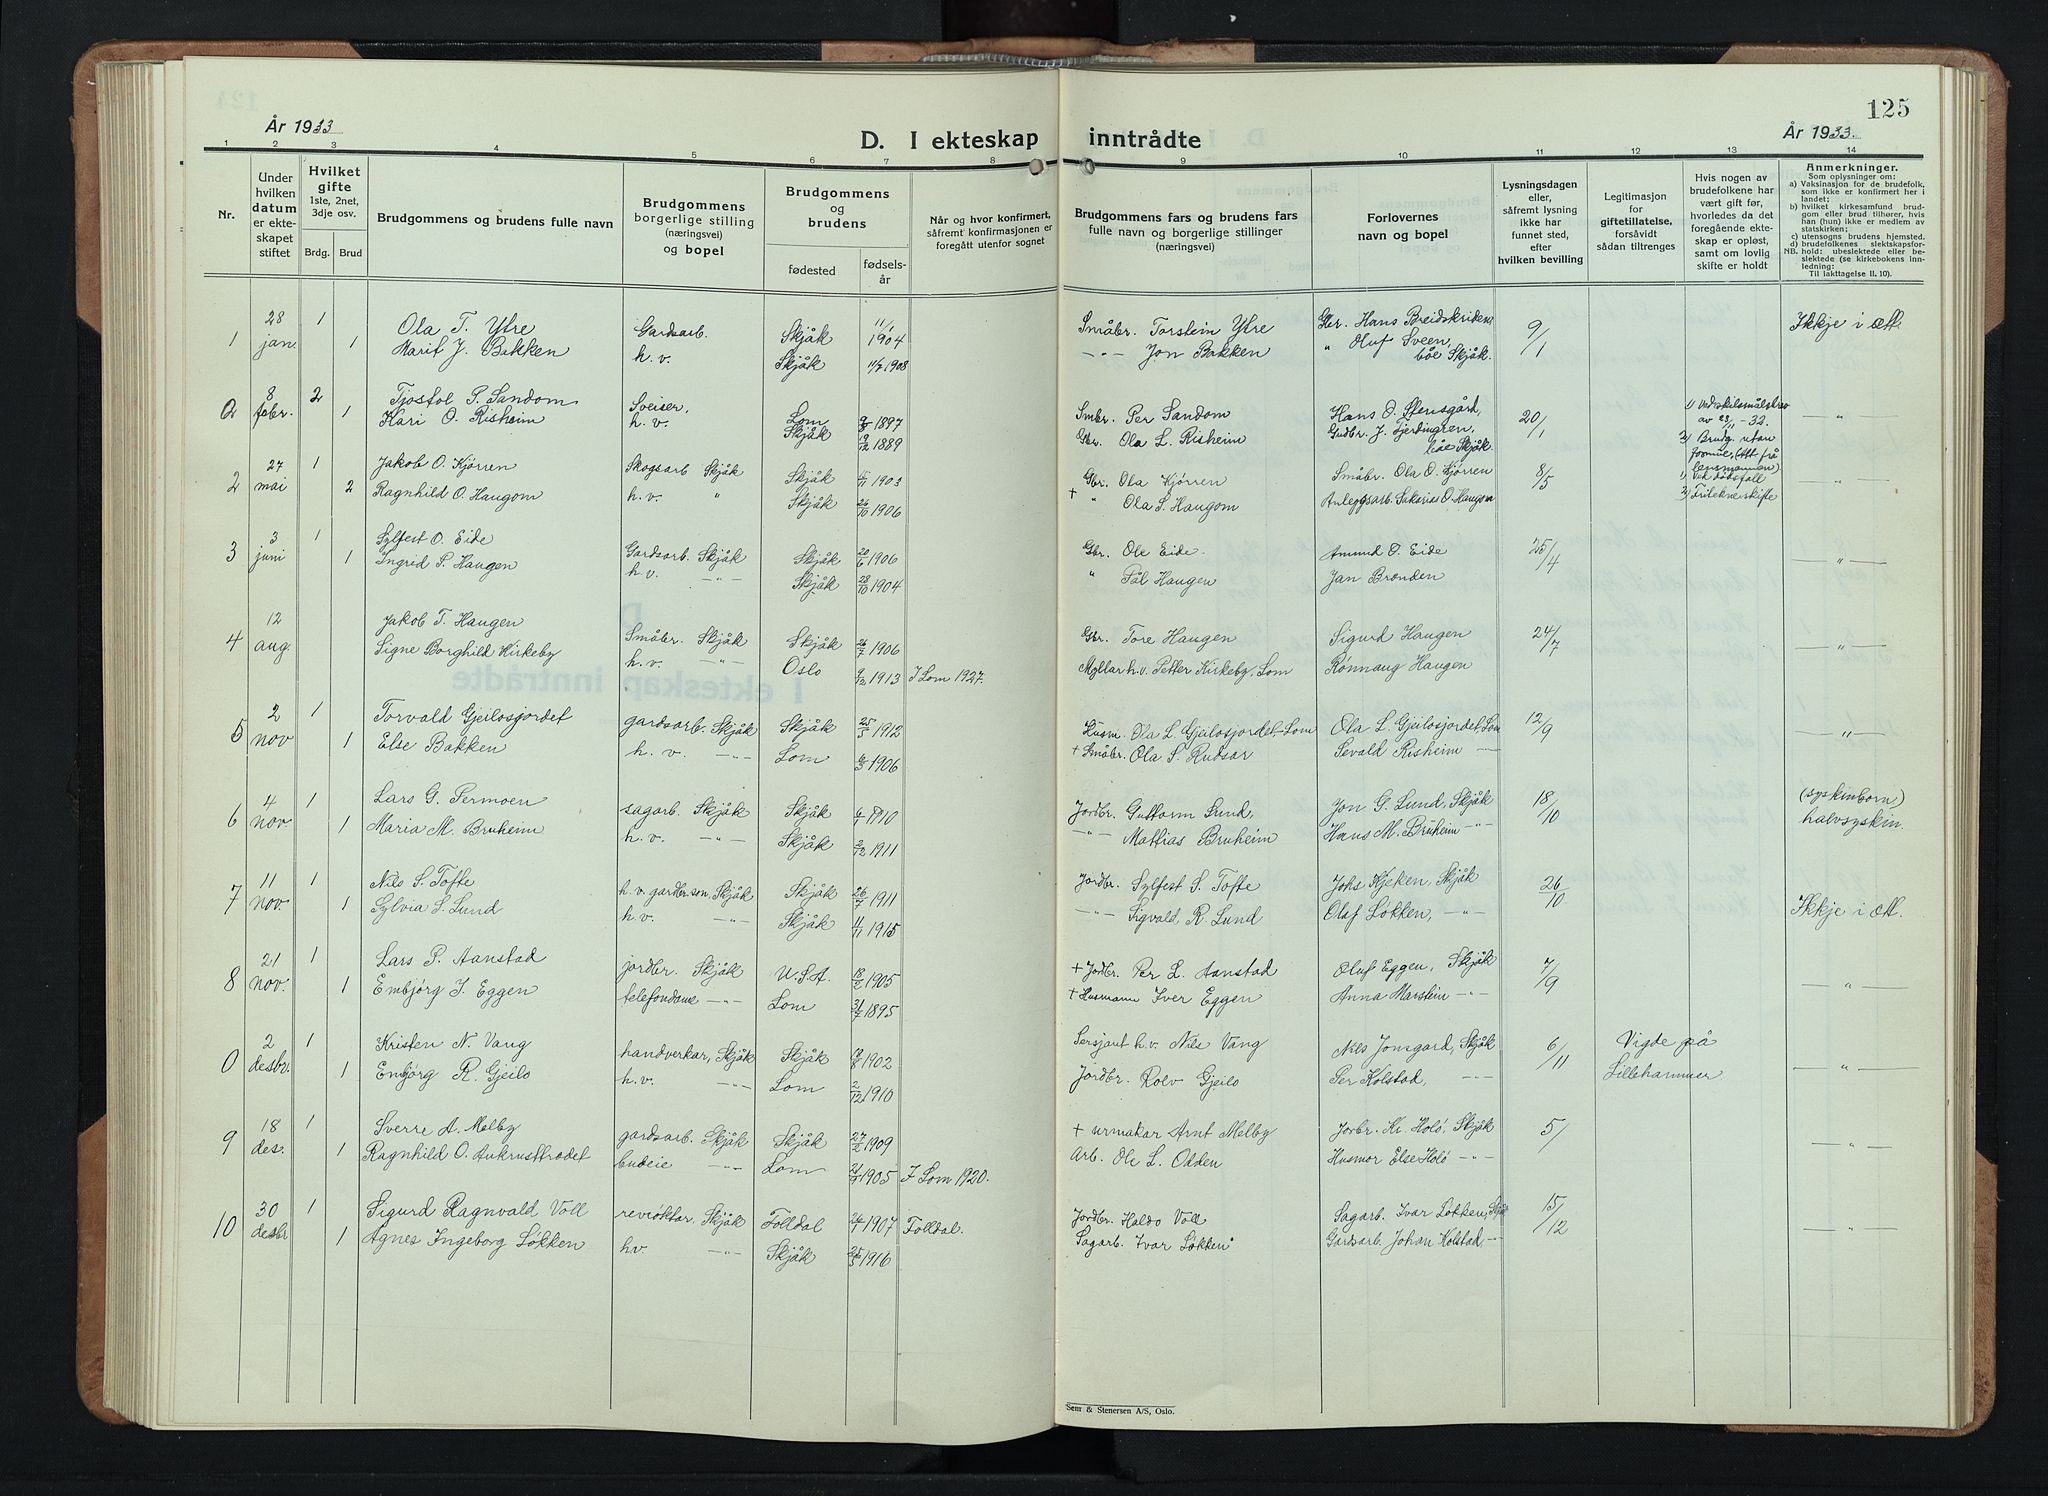 125
År 1933
D. I ekteskap inntrådte
År 1933.
1 2 3 4 5 6 7 8 9 10 11 12 13 14
Nr.
Under hvilken datum er ekteskapet stiftet
Hvilket gifte 1ste, 2net, 3dje osv.
Brdg. Brud
Brudgommens og brudens fulle navn
Brudgommens borgerlige stilling (næringsvei) og bopel
Brudgommens og brudens
fødested
fødselsår
Når og hvor konfirmert, såfremt konfirmasjonen er foregått utenfor sognet
Brudgommens fars og brudens fars fulle navn og borgerlige stillinger (næringsvei)
Forlovernes navn og bopel
Lysningsdagen eller, såfremt lysning ikke har funnet sted, efter hvilken bevilling
Legitimasjon for giftetillatelse, forsåvidt sådan tiltrenges
Hvis nogen av brudefolkene har vært gift før, hvorledes da det foregående ekteskap er opløst, samt om lovlig skifte er holdt
Anmerkninger.
Som oplysninger om:
a) Vaksinasjon for de brudefolk, som ikke er konfirmert her i landet;
b) hvilket kirkesamfund brudgom eller brud tilhører, hvis han (hun) ikke er medlem av statskirken;
c) utensogns brudens hjemsted.
d) brudefolkenes slektskapsforhold: ubeslektede eller beslektede (se kirkebokens innledning:
NB. Til iakttagelse II. 10).
1 28 jan. 1 Ola T. Ytre Gardsarb. Skjåk 11/1 1904 Småbr. Torstein Ytre Gbr. Hans Breidskriden 9/1 Ikkje i ætt.
1 Marit J. Bakken h. v. Skjåk 11/7 1908 -"- Jon Bakken " Oluf Sveen, båe Skjåk.
0 8 febr. 2 Tjostol P. Sandom Sveiser, Lom 9/8 1897 Smbr. Per Sandom Hans O. Stensgård, 20/1 1) Ved skilsmålsbrev av 23/11-32. -"-
1 Kari O. Risheim h. v. Skjåk 19/12 1889 Gbr. Ola L. Risheim Gudbr. J. Tjerdingren, båe Skjåk 2) Brudg. utan formue, (Att frå lensmannen)
2 27 mai 1 Jakob O. Kjörren Skogsarb Skjåk Skjåk 1903 Gbr. Ola Kjörren Småbr. Ola O. Kjörren 8/5 1) Ved dödsfall -"-
2 Ragnhild O. Haugom h. v. " Skjåk 26/10 1906 + " Ola S. Haugom Anleggsarb. Sakarias O. Haugom 2)
3 3 juni 1 Sylfest O. Eide Gardsarb. Skjåk Skjåk 20/6 1906 Gbr. Ole Eide. Amund O. Eide 25/4 -"-
1 Ingrid P. Haugen h. v. -"- Skjåk 28/10 1904 " Pål Haugen Jan Brenden
4 12 aug. Jakob T. Haugen Småbr. Skjåk Skjåk 26/7 1906 Gbr. Tore Haugen Sigurd Haugen 24/7 -"-
Signe Borghild Kirkeby h. v. -"- Oslo 9/12 1913 I Lom 1927. Myllar h. v. Petter Kirkeby, Lom Rönnaug Haugen
5 2 nov 1 Torvald Gjeilosjordet gardsarb. Skjåk Skjåk 25/5 1912 Husm. Ola L. Gjeilosjordet, Lom Ola L. Gjeilosjordet, Lom 12/9 -"-
1 Else Bakken h. v. -"- Lom 6/3 1906 + Småbr. Ola S. Rudsar Sevald Risheim -"-
6 4 nov. 1 Lars G. Permoen sagarb. Skjåk Skjåk 6/1 1910 Jordbr. Guttorm Lund, Jon G. Lund, Skjåk 18/10 (syskinborn)
1 Maria M. Bruheim h. v. -"- Skjåk 2/12 1911 -"- Mattias Bruheim Hans M. Bruheim -"- halvsyskin.
7 11 nov. 1 Nils S. Tofte h. v. gardbr. son, Skjåk Skjåk 26/7 1911 Jordbr. Sylfest S. Tofte Johs Kjeken, Skjåk 26/10 Ikkje i ætt.
1 Sylvia S. Lund h. v. -"- Skjåk 11/11 1915 -"- Sigvald R. Lund Olaf Lökken, -"-
8 21 nov. 1 Lars P. Aanstad jordbr. Skjåk U.S.A. 1905 + Jordbr. Per L. Aanstad Oluf Eggen, Skjåk 7/9 -"-
1 Embjörg I. Eggen telefondame -"- Lom 31/7 1895 + Husmann Iver Eggen Anna Marstein -"-
0 2 desbr. 1 Kristen N. Vang handverkar, Skjåk Skjåk 1902 Sersjant h. v. Nils Vang Nils Jonsgard, Skjåk 6/11 Vigde på Lillehammer -"-
1 Embjörg R. Gjeilo h. v. -"- Lom 2/12 1910 Jordbr. Rolv Gjeilo Per Kolstad, -"-
9 18 des. 1 Sverre A. Melby gardsarb. Skjåk Skjåk 27/2 1909 + urmakar Arnt Melby Jorbr. Kr. Holö, Skjåk 5/1 -"-
1 Ragnhild O. Aukrusttrædet budeie -"- Lom 1905 I Lom 1920. Arb. Ole L. Odden Husmor Else Holö -"-
10 30 desbr 1 Sigurd Ragnvald Voll revröktar, Skjåk Folldal 1907 Folldal. Jordbr. Haldo Voll Sagarb. Ivar Lökken, Skjåk 15/12 -"-
1 Agnes Ingeborg Lökken h.v. -"- Skjåk 25/3 1916 Sagarb. Ivar Lökken Gardsarb. Johan Kolstad, -"-
Sem & Stenersen A/S, Oslo.